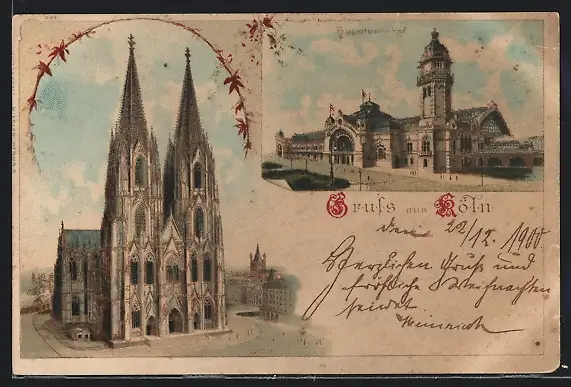 Hauptbahnhof
Gruss aus Köln
den 22/12. 1900
Herzlichen Gruß und
fröhliche Weihnachten
sendet
Heinrich